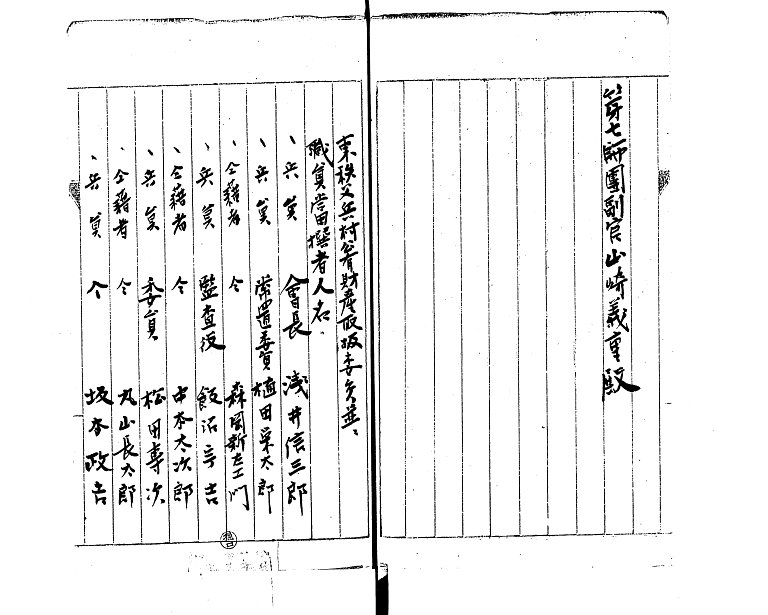 第七師團副官山崎義重殿
東秩父兵村共有財産取扱委員并、
職員當撰者人名、
、兵員 會長 浅井信三郎
、兵員 常置委員 植田栄太郎
、仝籍者 仝 森岡新左エ門
、兵員 監査役 飯沼亨吉
、仝籍者 仝 中本太次郎
、兵員 委員 松田専次
、仝籍者 仝 丸山長太郎
、兵員 仝 坂本政吉